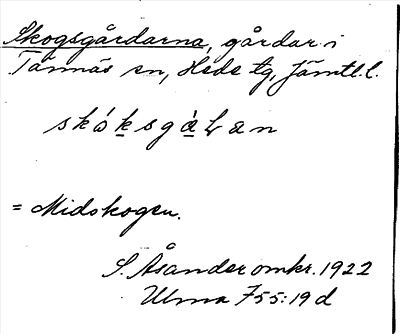 Skogsgårdarna, gårdar i
Tännäs sn, Hede tg, Jämtl. l.
skóksgàLan
= Midskogen.
S. Åsander omkr. 1922
Ulma 755:19d